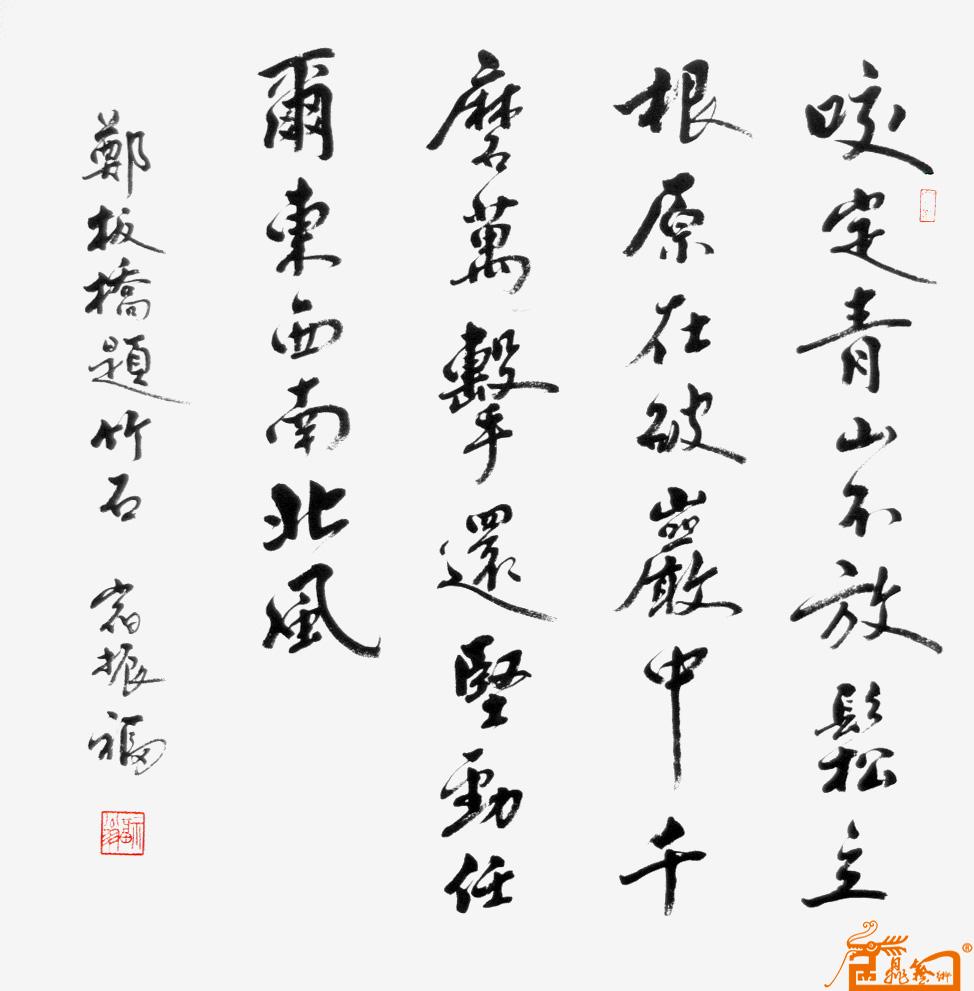 咬定青山不放鬆立
根原在破巖中千
磨萬擊還堅勁任
爾東西南北風
鄭板橋題竹石 翁振福